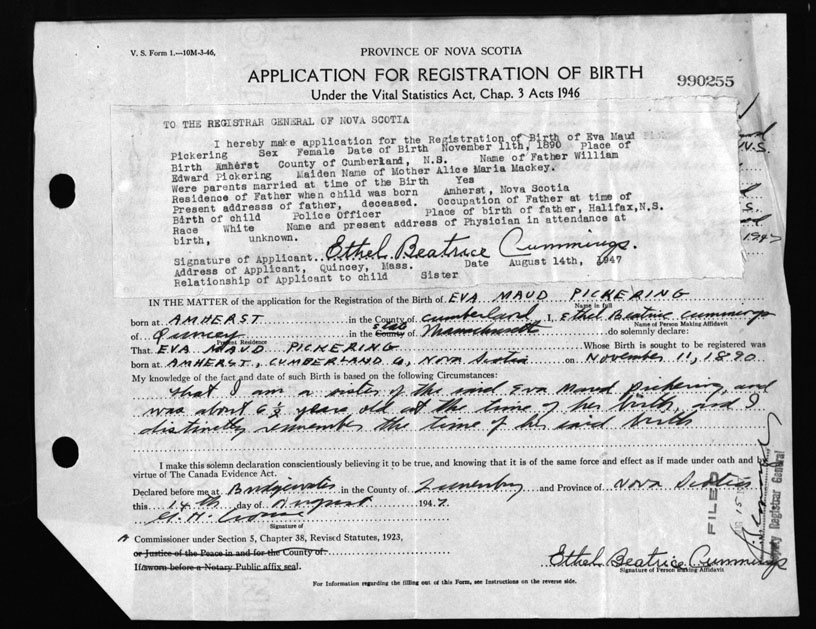 V. S. Form 1.—10M-3-46,
PROVINCE OF NOVA SCOTIA
APPLICATION FOR REGISTRATION OF BIRTH
990255
Under the Vital Statistics Act, Chap. 3 Acts 1946
TO THE REGISTRAR GENERAL OF NOVA SCOTIA
I hereby make application for the Registration of Birth of Eva Maud
Pickering Sex Female Date of Birth November 11th, 1890 Place of
Birth Amherst County of Cumberland, N.S. Name of Father William
Edward Pickering Maiden Name of Mother Alice Maria Mackey.
Were parents married at time of the Birth Yes
Residence of Father when child was born Amherst, Nova Scotia
Present addresss of father, deceased. Occupation of Father at time of
Birth of child Police Officer Place of birth of father, Halifax,N.S.
Race White Name and present address of Physician in attendance at
birth, unknown.
Signature of Applicant. Ethel Beatrice Cummings.
Address of Applicant, Quincey, Mass. Date August 14th, 1947
Relationship of Applicant to child Sister
V.S.
S.
1947
IN THE MATTER of the application for the Registration of the Birth of EVA MAUD PICKERING
Name in full
born at AMHERST in the County of Cumberland I, Ethel Beatric Cummings
Name of Person Making Affidavit
of Quincey in the County of State Massachusetts do solemnly declare:
Present Residence
That EVA MAUD PICKERING Whose Birth is sought to be registered was
born at AMHERST, CUMBERLAND Co, Nova Scotia on November 11, 1890
My knowledge of the fact and date of such Birth is based on the following Circumstances:
that I am a sister of the said Eva Maud Pickering, and
was about 6½ years old at the time of her birth, and I
distinctly remember the time of her said birth
I make this solemn declaration conscientiously believing it to be true, and knowing that it is of the same force and effect as if made under oath and by
virtue of The Canada Evidence Act.
Declared before me at Bridgewater in the County of Lunenburg and Province of Nova Scotia
this 14th day of August 1947
Signature of
A Commissioner under Section 5, Chapter 38, Revised Statutes, 1923,
or Justice of the Peace in and for the County of
If sworn before a Notary Public affix seal.
Ethel Beatrice Cummings
Signature of Person Making Affidavit
For Information regarding the filling out of this Form, see Instructions on the reverse side.
FILED
Deputy Registrar General